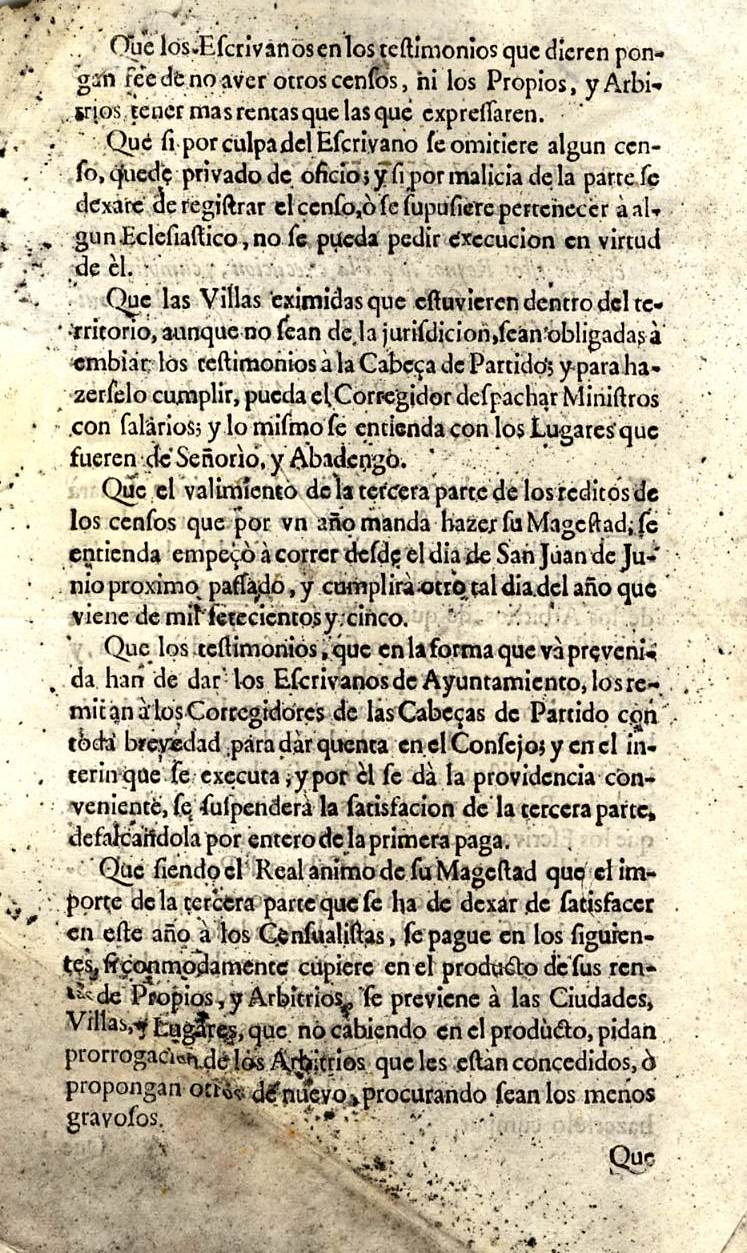 Que los Eſcrivanos en los teſtimonios que dieren pon-
gan fee de no aver otros cenſos, ni los Propios, y Arbi-
trios tener mas rentas que las que expreſſaren.
Que ſi por culpa del Eſcrivano ſe omitiere algun cen-
ſo, quede privado de oficio; y ſi por malicia de la parte ſe
dexare de regiſtrar el cenſo, ò ſe ſupuſiere pertenecer à al-
gun Ecleſiaſtico, no ſe pueda pedir execucion en virtud
de èl.
Que las Villas eximidas que eſtuvieren dentro del te-
rritorio, aunque no ſean de la juriſdicion, ſean obligadas à
embiar los teſtimonios à la Cabeça de Partido; y para ha-
zerſelo cumplir, pueda el Corregidor deſpachar Miniſtros
con ſalarios; y lo miſmo ſe entienda con los Lugares que
fueren de Señorìo, y Abadengo.
Que el valimiento de la tercera parte de los reditos de
los cenſos que por vn año manda hazer ſu Mageſtad, ſe
entienda empeçò à correr deſde el dia de San Juan de Ju-
nio proximo paſſado, y cumplirà otro tal dia del año que
viene de mil ſetecientos y cinco.
Que los teſtimonios, que en la forma que và preveni-
da han de dar los Eſcrivanos de Ayuntamiento, los re-
mitan à los Corregidores de las Cabeças de Partido con
toda brevedad para dàr quenta en el Conſejo; y en el in-
terin que ſe executa, y por èl ſe dà la providencia con-
veniente, ſe ſuſpenderà la ſatisfacion de la tercera parte,
defalcandola por entero de la primera paga.
Que ſiendo el Real animo de ſu Mageſtad que el im-
porte de la tercera parte que ſe ha de dexar de ſatisfacer
en eſte año à los Cenſualiſtas, ſe pague en los ſiguien-
tes, ſi conmodamente cupiere en el producto de ſus ren-
tas de Propios, y Arbitrios, ſe previene à las Ciudades,
Villas, y Lugares, que no cabiendo en el producto, pidan
prorrogacion de los Arbitrios que les eſtan concedidos, ò
propongan otros de nuevo, procurando ſean los menos
gravoſos.
Que